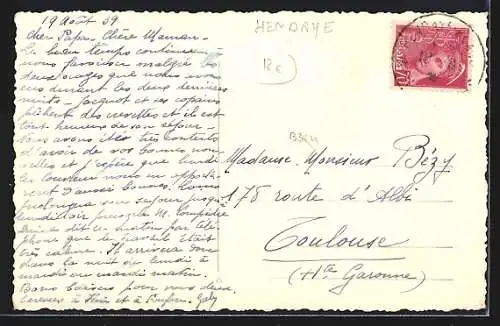 19 Août 39
Cher Papa, Chère Maman -
Le beau temps continue
nous favoriser malgré les
deux orages que nous avons
eus durant les deux dernières
nuits - Jacquot et ses copains
pêchent des crevettes et il est
très heureux de son séjour -
Nous avons été très contents
d'avoir de vos bonnes nou-
velles et j'espère que lundi
le courrier nous en appor-
tera d'aussi bonnes. Nous
prolongeons notre séjour jusqu'à
lundi soir puisque M.
a dit ce matin par télé-
phone que le travail était
très calme. Il arrivera donc
dans la nuit de lundi à
mardi ou mardi matin.
Bons baisers pour vous deux,
caresses à et à Gaby
HENDAYE
12€
Madame, Monsieur Bézy
178 route d'Albi
Toulouse
(Hte Garonne)
POSTES